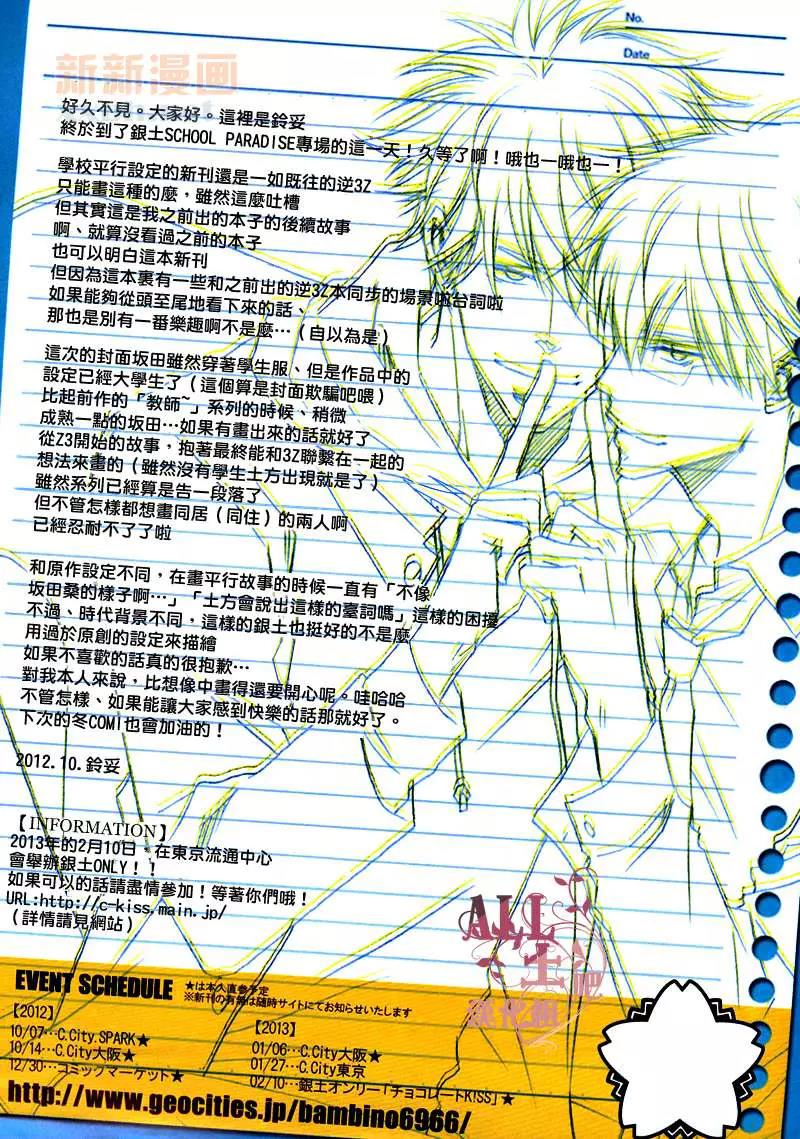 No.
Date
新新漫画
好久不見。大家好。這裡是鈴妥
終於到了銀土SCHOOL PARADISE專場的這一天！久等了啊！哦也一哦也一！
學校平行設定的新刊還是一如既往的逆3Z
只能畫這種的麼，雖然這麼吐槽
但其實這是我之前出的本子的後續故事
啊、就算沒看過之前的本子
也可以明白這本新刊
但因為這本裏有一些和之前出的逆3Z本同步的場景啦台詞啦
如果能夠從頭至尾地看下來的話、
那也是別有一番樂趣啊不是麼…（自以為是）
這次的封面坂田雖然穿著學生服、但是作品中的
設定已經大學生了（這個算是封面欺騙吧喂）
比起前作的「教師~」系列的時候、稍微
成熟一點的坂田…如果有畫出來的話就好了
從Z3開始的故事，抱著最終能和3Z聯繫在一起的
想法來畫的（雖然沒有學生土方出現就是了）
雖然系列已經算是告一段落了
但不管怎樣都想畫同居（同住）的兩人啊
已經忍耐不了了啦
和原作設定不同，在畫平行故事的時候一直有「不像
坂田桑的樣子啊…」「土方會說出這樣的臺詞嗎」這樣的困擾
不過、時代背景不同，這樣的銀土也挺好的不是麼
用過於原創的設定來描繪
如果不喜歡的話真的很抱歉…
對我本人來說，比想像中畫得還要開心呢。哇哈哈
不管怎樣、如果能讓大家感到快樂的話那就好了。
下次的冬COMI也會加油的！
2012.10.鈴妥
【INFORMATION】
2013年的2月10日，在東京流通中心
會舉辦銀土ONLY！！
如果可以的話請盡情參加！等著你們哦！
URL:http://c-kiss.main.jp/
（詳情請見網站）
ALL
土
吧
漢化組
EVENT SCHEDULE ★は本人直参予定
※新刊の有無は随時サイトにてお知らせいたします
【2012】
10/07…C.City.SPARK★
10/14…C.City大阪★
12/30…コミックマーケット★
【2013】
01/06…C.City大阪★
01/27…C.City東京
02/10…銀土オンリー「チョコレートK!SS」★
http://www.geocities.jp/bambino6966/